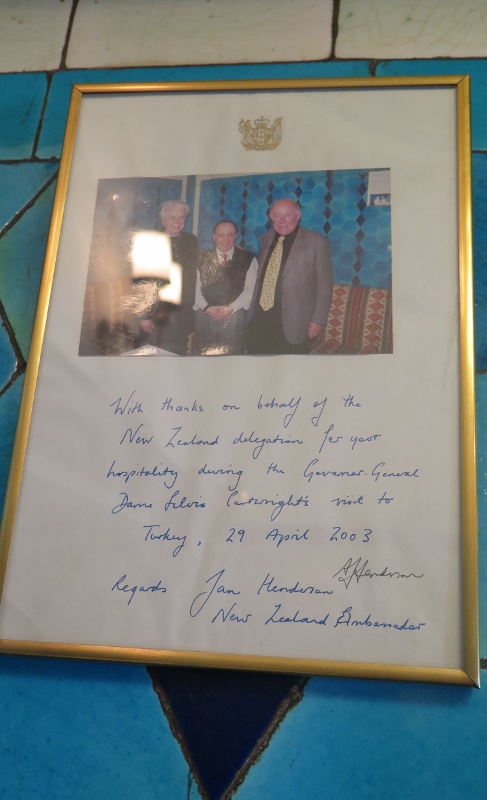 With thanks on behalf of the
New Zealand delegation for your
hospitality during the Governor-General
Dame Silvia Cartwright's visit to
Turkey, 29 April 2003
AJHenderson
Regards Jan Henderson
New Zealand Ambassador